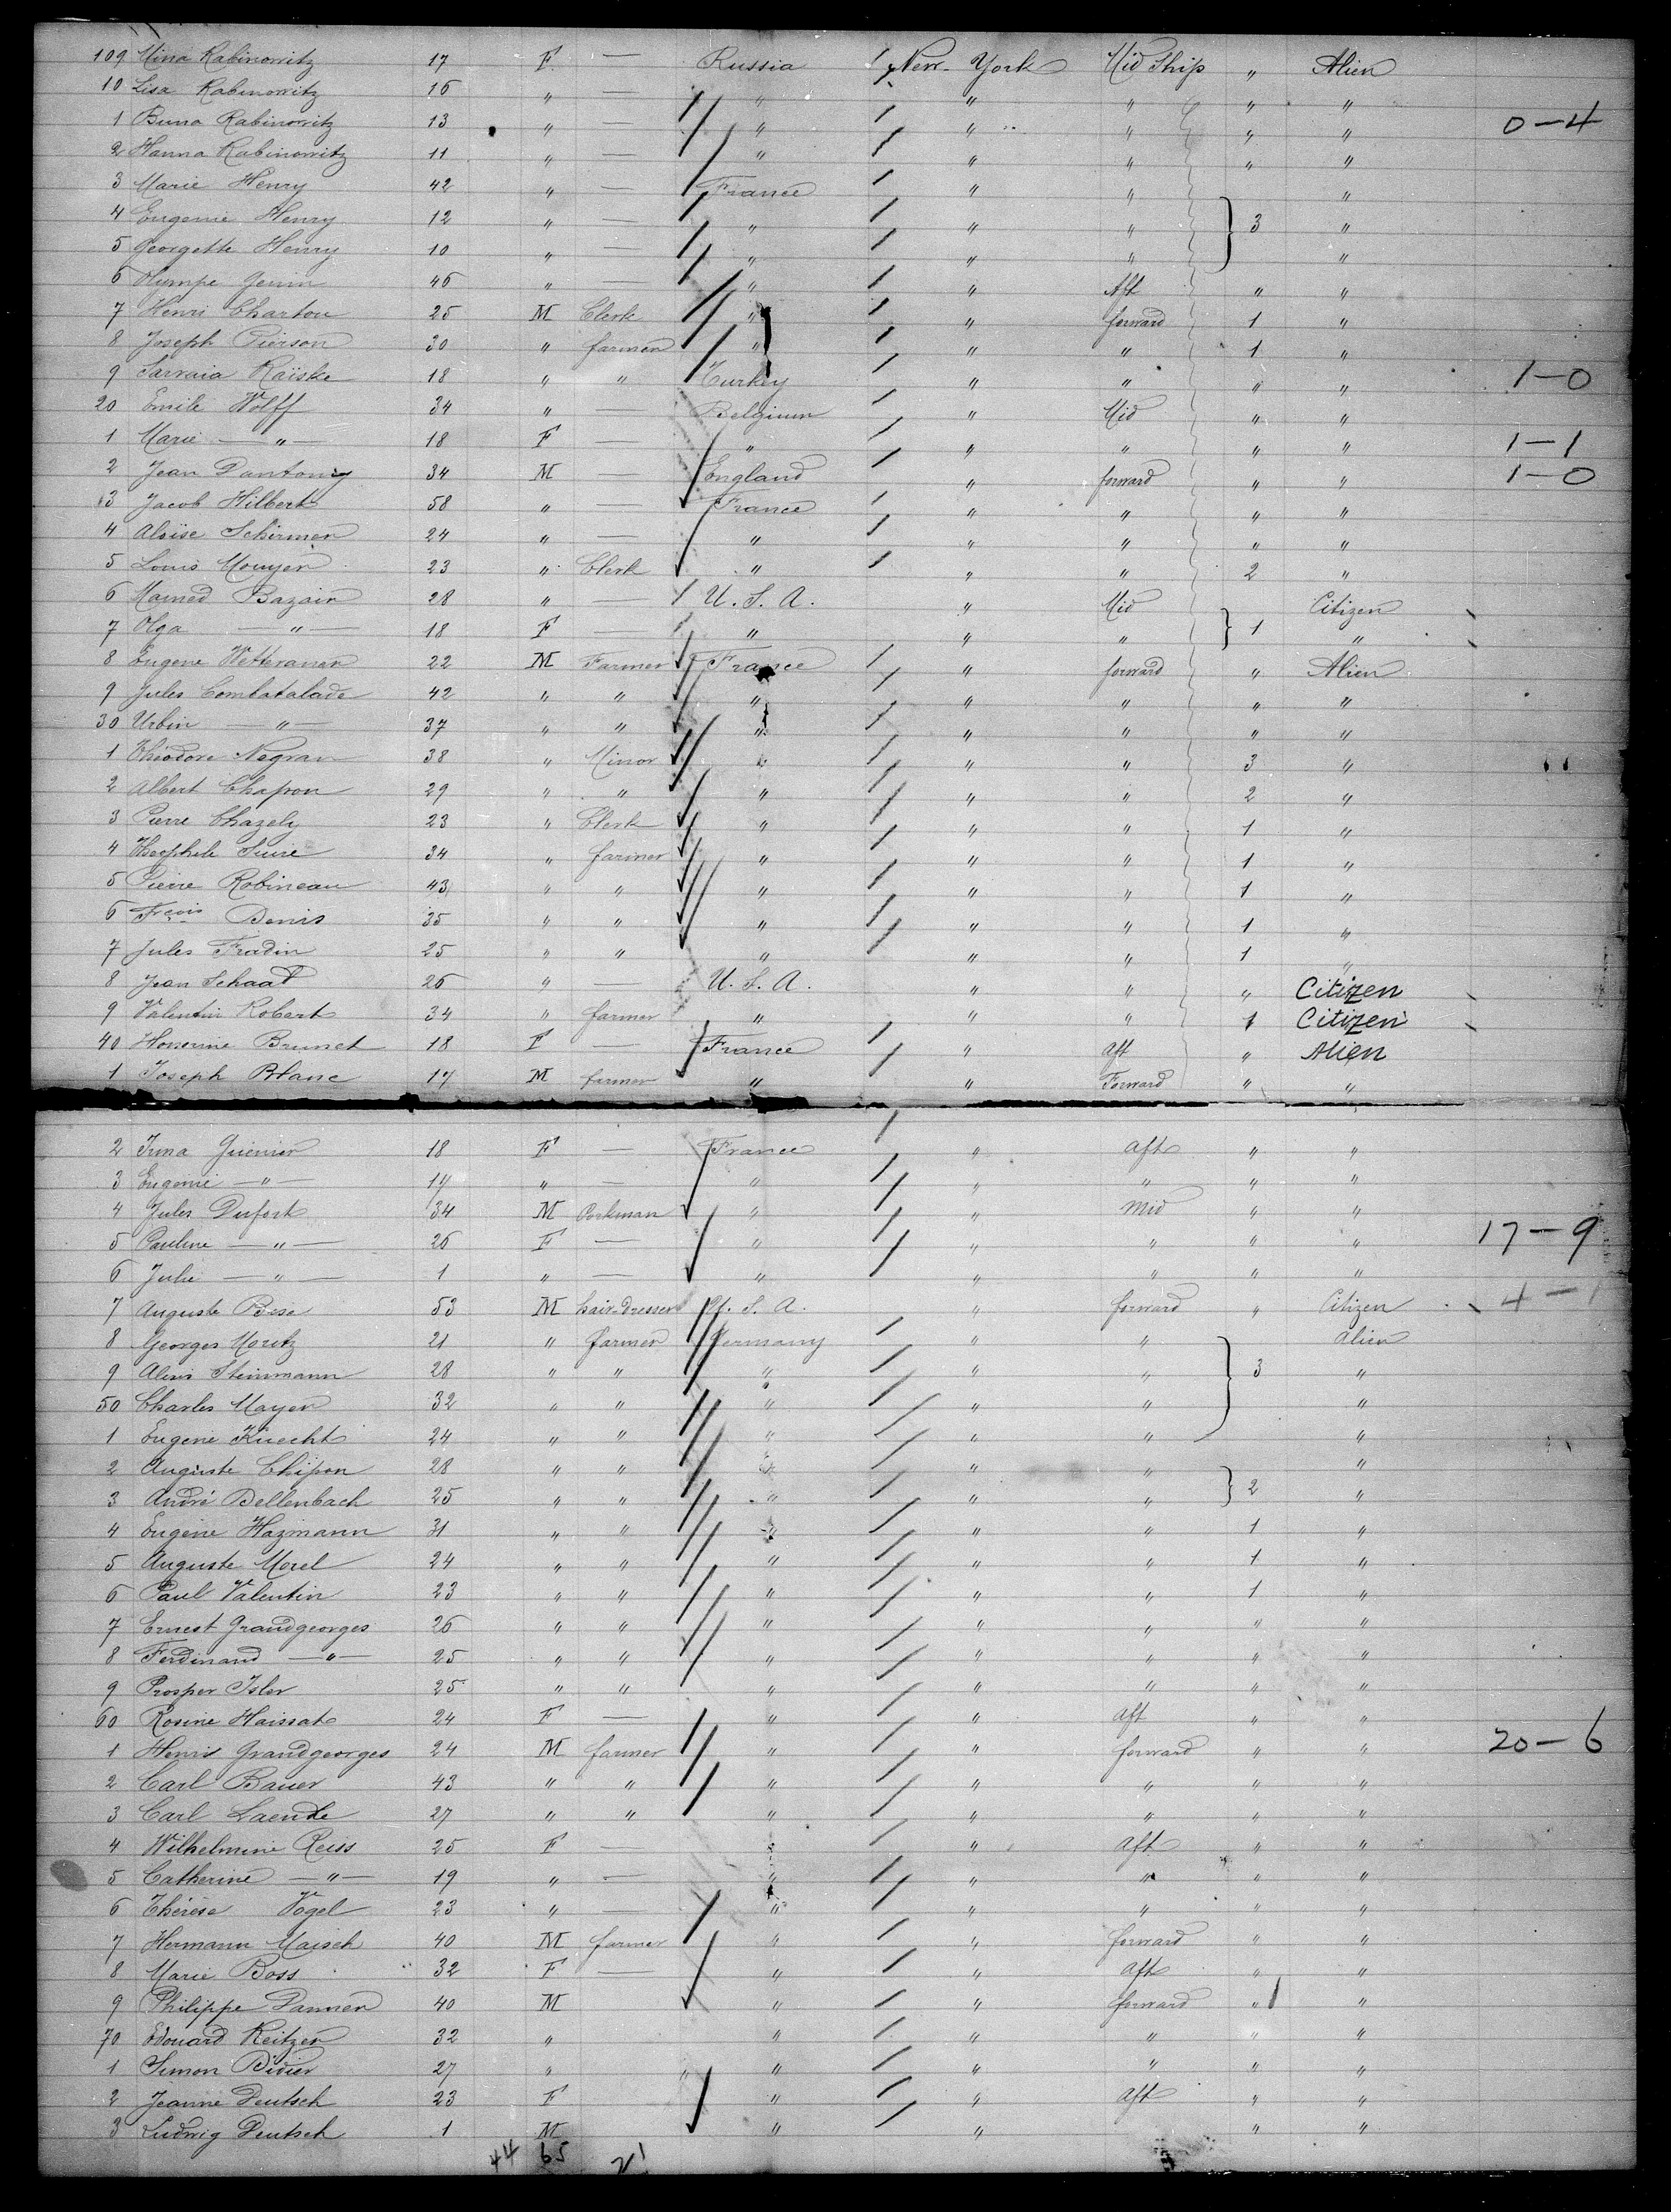 109 Mina Rabinowitz 17 F. — Russia New-York Mid Ship " Alien
10 Lisa Rabinowitz 16 " — " " " " "
1 Buna Rabinowitz 13 " — " " " " " 0-4
2 Hanna Rabinowitz 11 " — " " " " "
3 Marie Henry 42 " — France " " "
4 Eugenie Henry 12 " — " " " 3 "
5 Georgette Henry 10 " — " " " "
6 Olympe Genin 46 " — " " Aft " "
7 Henri Charton 25 M Clerk " " forward 1 "
8 Joseph Pierson 30 " farmer " " " 1 "
9 Sarraia Raïske 18 " " Turkey " " " " 1-0
20 Emile Wolff 34 " — Belgium " Mid " "
1 Marie — " — 18 F — " " " " " 1-1
2 Jean Dantony 34 M — England " forward " " 1-0
3 Jacob Hilbert 58 " — France " " " "
4 Aloïse Schirmer 24 " — " " " " "
5 Louis Mouyer 23 " Clerk " " " 2 "
6 Mamed Bazair 28 " — U. S. A. " Mid Citizen
7 Olga — " — 18 F — " " " 1 "
8 Eugene Wetteraner 22 M Farmer France " forward " Alien
9 Jules Combatalade 42 " " " " " " "
30 Urbin — " — 37 " " " " " " "
1 Théodore Negran 38 " Minor " " " 3 "
2 Albert Chapron 29 " " " " " 2 "
3 Pierre Chazely 23 " Clerk " " " 1 "
4 Theophile Suire 34 " farmer " " " 1 "
5 Pierre Robineau 43 " " " " " 1 "
6 Frçois Denis 35 " " " " " 1 "
7 Jules Fradin 25 " " " " " 1 "
8 Jean Schaad 26 " — U. S. A. " " " Citizen
9 Valentin Robert 34 " farmer " " " 1 Citizen
40 Honorine Brunet 18 F — France " aft " Alien
1 Joseph Blanc 17 M farmer " " Forward " "
2 Irma Guenier 18 F — France " aft " "
3 Eugenie — " — 14 " — " " " " "
4 Jules Dufort 34 M Porkman " " Mid " "
5 Pauline — " — 26 F — " " " " " 17-9
6 Julie — " — 1 " — " " " " "
7 Auguste Bese 53 M hair-Dresser U. S. A. " forward " Citizen 4-1
8 Georges Moritz 21 " farmer Germany " " Alien
9 Alexis Steinmann 28 " " " " " 3 "
50 Charles Mayer 32 " " " " " "
1 Eugene Knecht 24 " " " " " "
2 Auguste Chipon 28 " " " " " "
3 André Dellenbach 25 " " " " " 2 "
4 Eugene Hazmann 31 " " " " " 1 "
5 Auguste Morel 24 " " " " " 1 "
6 Paul Valentin 23 " " " " " 1 "
7 Ernest Grandgeorges 26 " " " " " " "
8 Ferdinand — " — 25 " " " " " " "
9 Prosper Isler 25 " " " " " " "
60 Rosine Haissat 24 F — " " aft " "
1 Henri Grandgeorges 24 M farmer " " forward " " 20-6
2 Carl Bauer 43 " " " " " " "
3 Carl Laende 27 " " " " " " "
4 Wilhelmine Reiss 25 F — " " aft " "
5 Catherine — " — 19 " — " " " " "
6 Thérèse Vogel 23 " " " " " "
7 Hermann Maisch 40 M farmer " " forward " "
8 Marie Boss 32 F — " " aft " "
9 Philippe Danner 40 M " " forward " 1 "
70 Edouard Keitzer 32 " " " " " "
1 Simon Didier 27 " " " " " " "
2 Jeanne Deutsch 23 F " " aft " "
3 Ludwig Deutsch 1 M " " " "
44 65 21